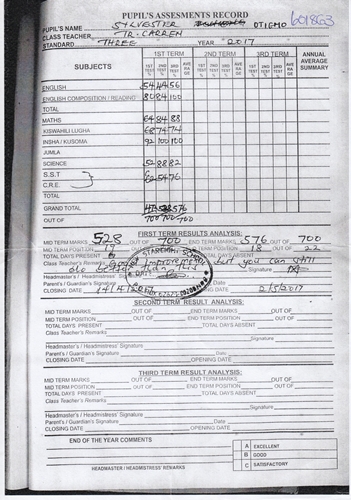 PUPIL'S ASSESMENTS RECORD
601863
PUPIL'S NAME SYLVESTER OTIENO
CLASS TEACHER TR. CARREN
STANDARD THREE YEAR 2017
SUBJECTS 1ST TERM 2ND TERM 3RD TERM ANNUAL AVERAGE SUMMARY
1ST TEST % 2ND TEST % 3RD TEST % AVE RA GE 1ST TEST % 2ND TEST % 3RD TEST % AVE RA GE 1ST TEST % 2ND TEST % 3RD TEST % AVE RA GE
ENGLISH 54 44 56
ENGLISH COMPOSITION / READING 80 84 100
TOTAL
MATHS 64 84 88
KISWAHILI LUGHA 68 74 74
INSHA / KUSOMA 92 100 100
JUMLA
SCIENCE 52 88 82
S.S.T
C.R.E. 54 76
TOTAL
GRAND TOTAL 528 576
OUT OF 700 700 700
FIRST TERM RESULTS ANALYSIS:
MID TERM MARKS 528 OUT OF 700 END TERM MARKS 576 OUT OF 700
MID TERM POSITION 17 OUT OF END TERM POSITION 18 OUT OF 22
TOTAL DAYS PRESENT TOTAL DAYS ABSENT
Class Teacher's Remarks Good improvement but you can still
do better than this Signature
Headmaster's / Headmistress' Signature
Parent's / Guardian's Signature Date
CLOSING DATE 14/4/2017 2/5/2017
SECOND TERM RESULT ANALYSIS:
MID TERM MARKS OUT OF END TERM MARKS OUT OF
MID TERM POSITION OUT OF END TERM POSITION OUT OF
TOTAL DAYS PRESENT TOTAL DAYS ABSENT
Class Teacher's Remarks
Signature
Headmaster's / Headmistress' Signature
Parent's / Guardian's Signature Date
CLOSING DATE OPENING DATE
THIRD TERM RESULT ANALYSIS:
MID TERM MARKS OUT OF END TERM MARKS OUT OF
MID TERM POSITION OUT OF END TERM POSITION OUT OF
TOTAL DAYS PRESENT TOTAL DAYS ABSENT
Class Teacher's Remarks
Signature
Headmaster's / Headmistress' Signature
Parent's / Guardian's Signature Date
CLOSING DATE OPENING DATE
END OF THE YEAR COMMENTS
A EXCELLENT
B GOOD
C SATISFACTORY
HEADMASTER / HEADMISTRESS' REMARKS